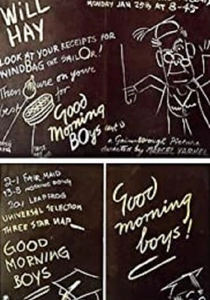 WILL
HAY
MONDAY JAN 25th AT 8-45
LOOK AT YOUR RECEIPTS FOR
WINDBAG THE SAILOR!
Then on your
best for
Good
Morning
BOYS
A Gainsborough Picture
directed by MARCEL VARNEL
2-1 FAIR MAID
20/1 LEAPFROG
UNIVERSAL SELECTION
THREE STAR NAP
GOOD
MORNING
BOYS
Good
morning
boys!